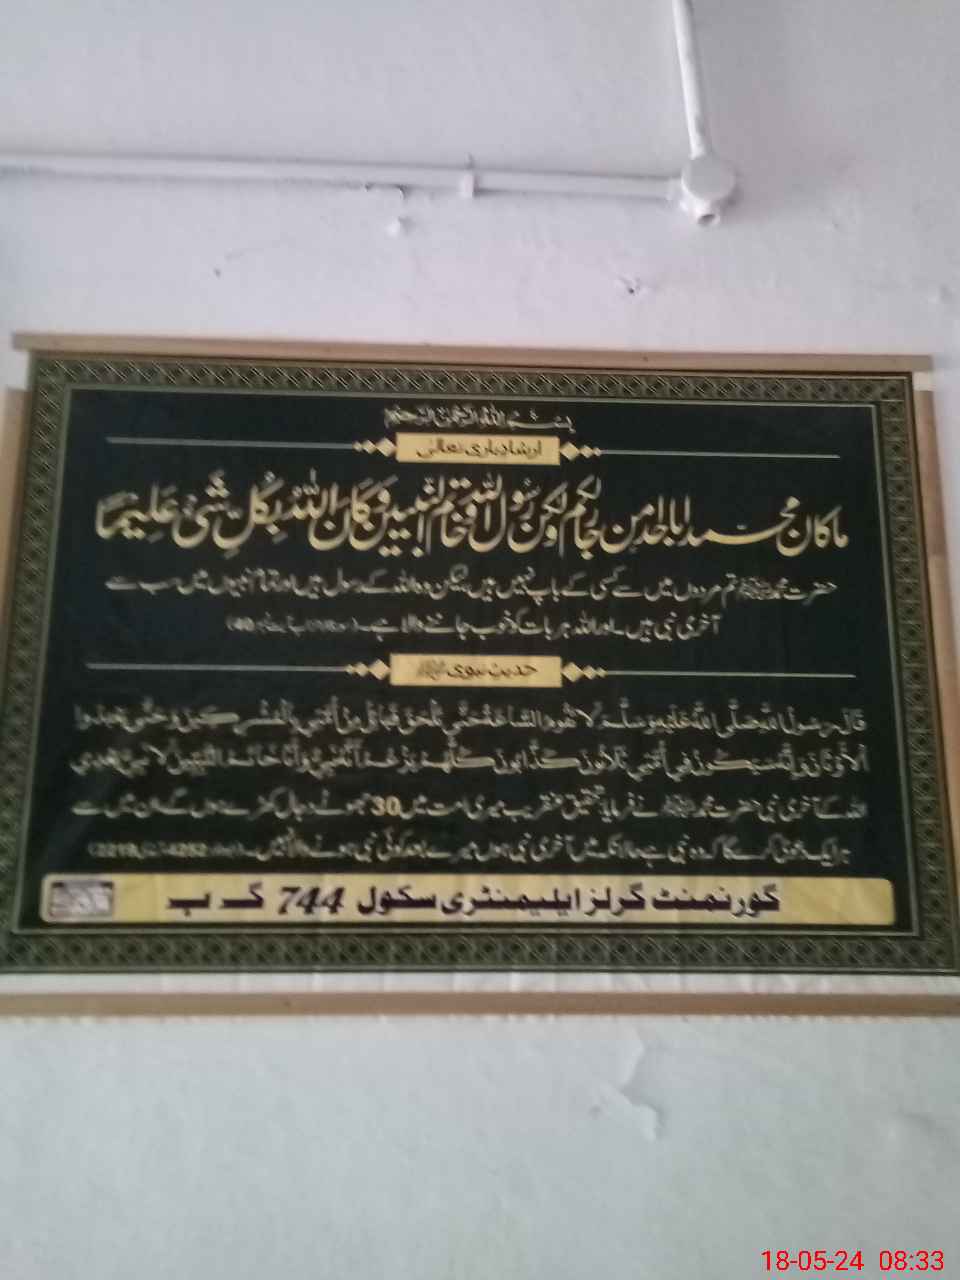 بِسْمِ اللهِ الرَّحْمٰنِ الرَّحِيْمِ
ارشاد باری تعالیٰ
ما كان محمد ابا احد من رجالكم ولكن رسول الله وخاتم النبيين وكان الله بكل شيء عليما
حضرت محمد ﷺ تم مردوں میں سے کسی کے باپ نہیں ہیں لیکن وہ اللہ کے رسول ہیں اور تمام نبیوں میں سب سے
آخری نبی ہیں۔ اور اللہ ہر بات کو خوب جاننے والا ہے۔ 40)
حدیث نبوی ﷺ
قال رسول الله صلى الله عليه وسلم لا تقوم الساعة حتى تلحق قبائل من امتي بالمشركين وحتى يعبدوا
الاوثان وانه سيكون في امتي ثلاثون كذابون كلهم يزعم انه نبي وانا خاتم النبيين لا نبي بعدي
اللہ کے آخری نبی حضرت محمد ﷺ نے فرمایا تحقیق عنقریب میری امت میں 30 جھوٹے دجال کھڑے ہوں گے ان میں سے
ہر ایک دعویٰ کرے گا کہ وہ نبی ہے حالانکہ میں آخری نبی ہوں میرے بعد کوئی نبی ہونے والا نہیں۔ 4252، 2219)
گورنمنٹ گرلز ایلیمنٹری سکول 744 گ ب
18-05-24 08:33